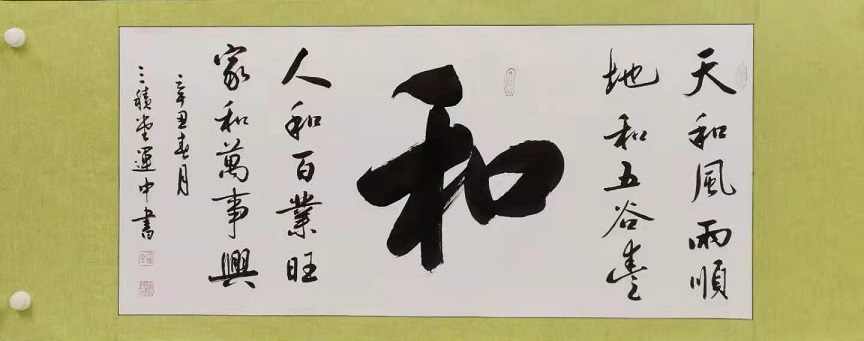 天和風雨順
地和五谷豐
和
人和百業旺
家和萬事興
辛丑春月
三積堂運中書